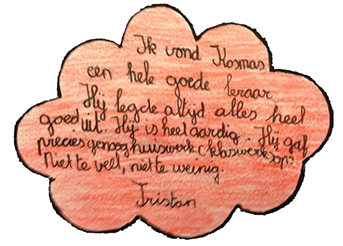 Ik vond Kosmas
een hele goede leraar.
Hij legde altijd alles heel
goed uit. Hij is heel aardig. Hij gaf
precies genoeg huiswerk (klaswerk) op:
Niet te veel, niet te weinig.
Tristan